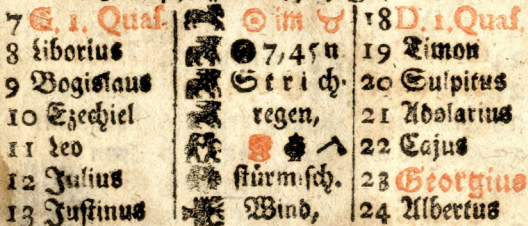 7 E. 1. Quas. ☉ im ♉ 18 D. 1. Quas.
8 Liborius ● 7,45 n 19 Timon
9 Bogislaus Strich- 20 Sulpitus
10 Ezechiel regen, 21 Adolarius
11 Leo 22 Cajus
12 Julius stürmisch. 23 Georgius
13 Justinus Wind, 24 Albertus